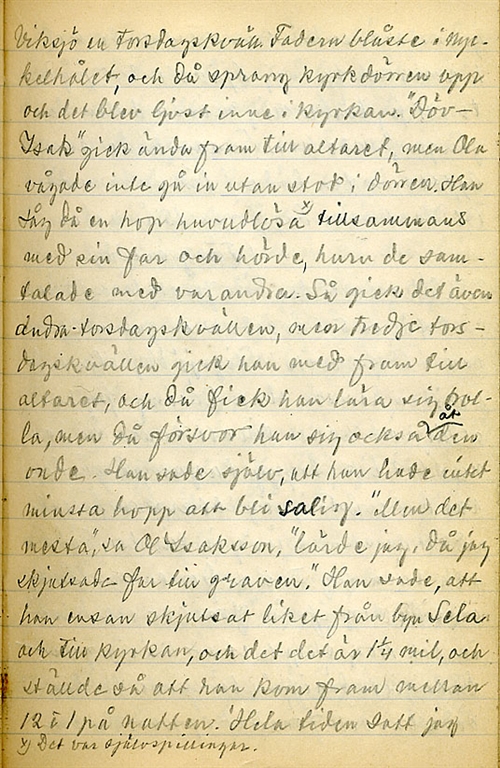 Viksjö en torsdagskväll. Fadern blåste i nyc-
kelhålet, och då sprang kyrkdörren upp
och det blev ljust inne i kyrkan. "Döv-
Isak" gick ända fram till altaret, men Ola
vågade inte gå in utan stod i dörren. Han
såg då en hop huvudlösa x) tillsammans
med sin far och hörde, huru de sam-
talade med varandra. Så gick det även
andra torsdagskvällen, men tredje tors-
dagskvällen gick han med fram till
altaret, och då fick han lära sig trol-
la, men då försvor han sig också åt den
onde. Han sade själv, att han hade intet
minsta hopp att bli salig. "Men det
mesta", sa Ol Isaksson, "lärde jag, då jag
skjutsade far till graven." Han sade, att
han ensam skjutsat liket från byn Sela
och till kyrkan, och det det är 1 1/4 mil, och
ställde så att han kom fram mellan
12 à 1 på natten. "Hela tiden satt jag
x) Det var självspillingar.